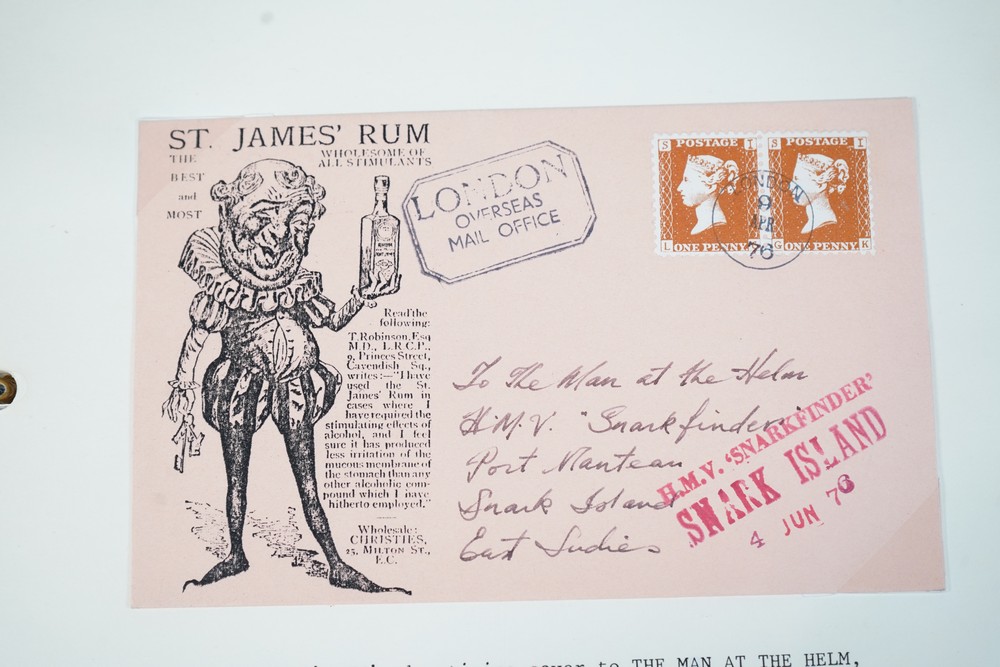 ST. JAMES' RUM
THE
BEST
and
MOST
WHOLESOME OF
ALL STIMULANTS
Read the
following:
T. Robinson, Esq
M.D., L.R.C.P.,
9, Princes Street,
Cavendish Sq.,
writes:—"I have
used the St.
James' Rum in
cases where I
have required the
stimulating effects of
alcohol, and I feel
sure it has produced
less irritation of the
mucous membrane of
the stomach than any
other alcoholic com-
pound which I have
hitherto employed."
Wholesale:
CHRISTIES,
25, MILTON ST.,
E.C.
LONDON
OVERSEAS
MAIL OFFICE
S POSTAGE I
L ONE PENNY
S POSTAGE I
G ONE PENNY K
LONDON
9
APR
76
To The Man at the Helm
H.M.V. "Snarkfinder"
Port Manteau
Snark Island
East Indies
H.M.V. 'SNARKFINDER'
SNARK ISLAND
4 JUN 76
cover to THE MAN AT THE HELM,